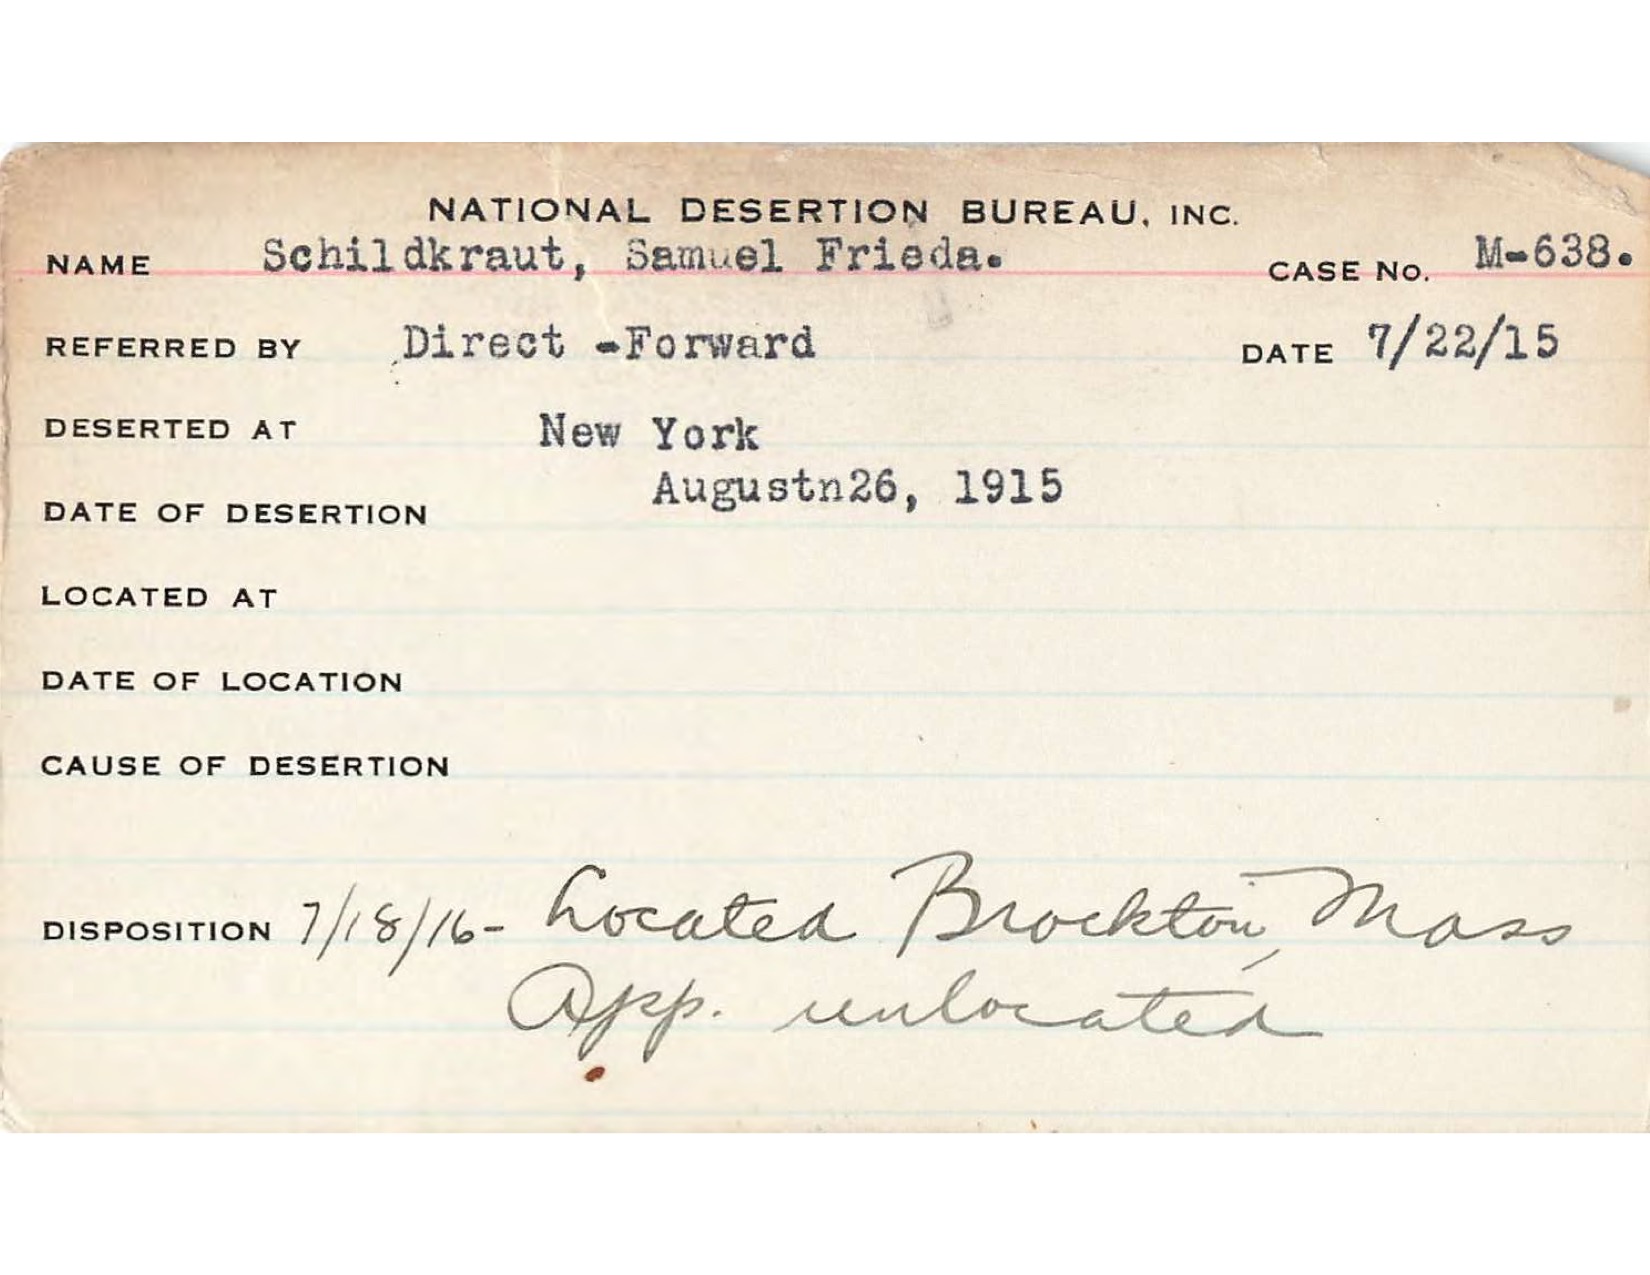 NATIONAL DESERTION BUREAU, INC.
NAME Schildkraut, Samuel Frieda. CASE NO. M-638.
REFERRED BY Direct -Forward DATE 7/22/15
DESERTED AT New York
DATE OF DESERTION Augustn26, 1915
LOCATED AT
DATE OF LOCATION
CAUSE OF DESERTION
DISPOSITION 7/18/16- Located Brockton, Mass
App. unlocated